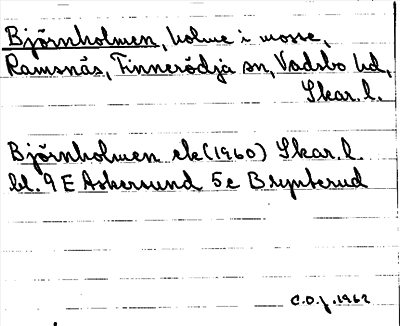 Björnholmen, holme i mosse,
Ramsnäs, Finnerödja sn, Vadsbo hd,
Skar. l.
Björnholmen ek (1960) Skar. l.
bl. 9 E Askersund 5 c Brynterud
C.O.J. 1962